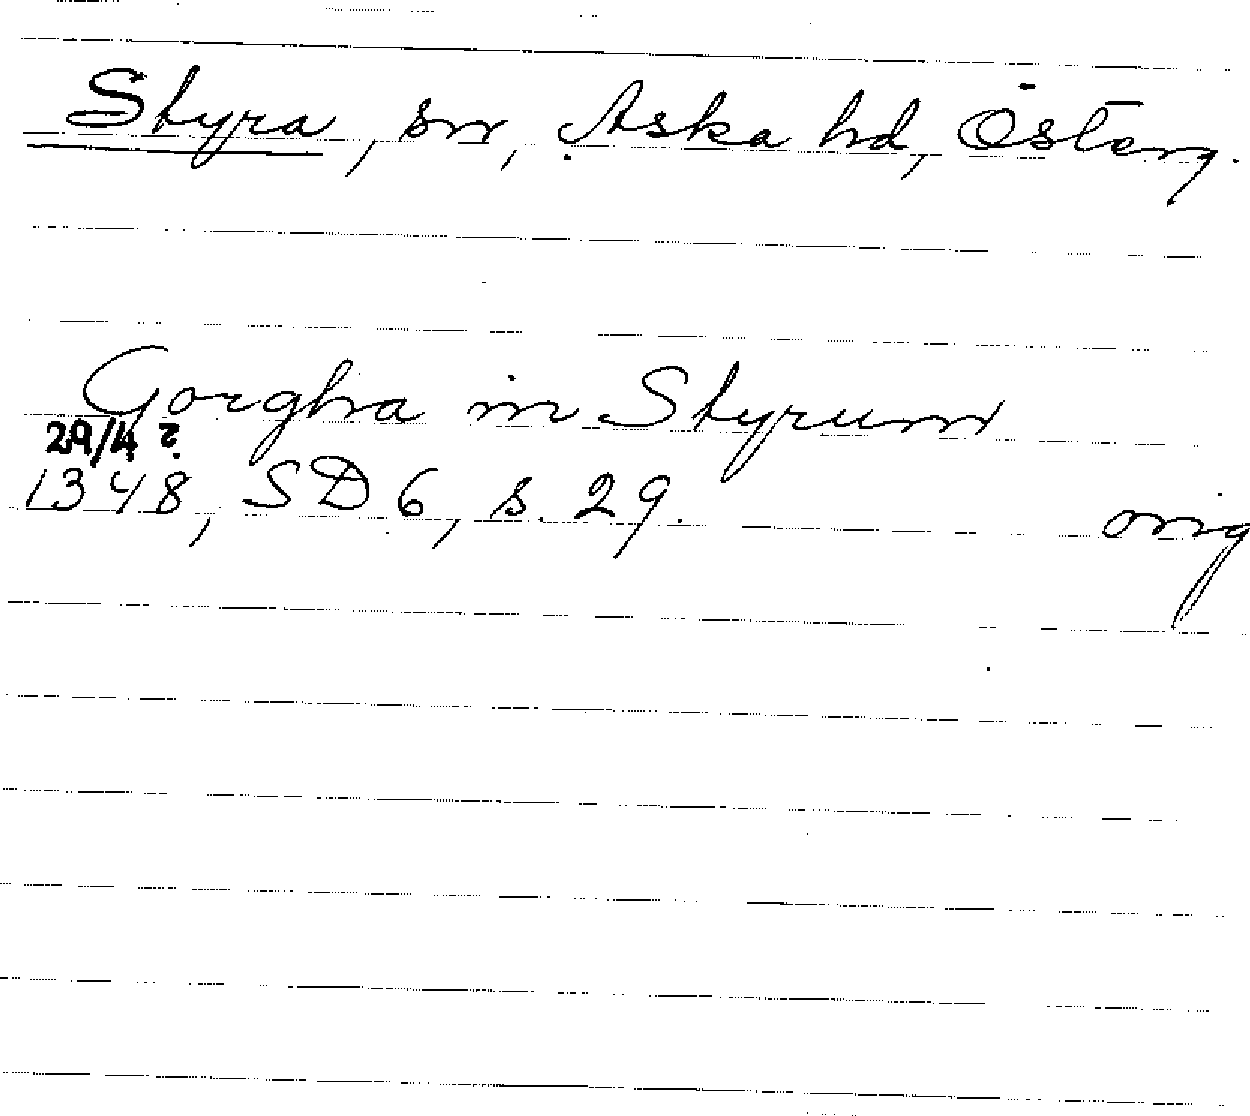 Styra, sn, Aska hd, Österg.
Gorgha in Styrum
29/4 ?
1348, SD 6, s. 29. orig